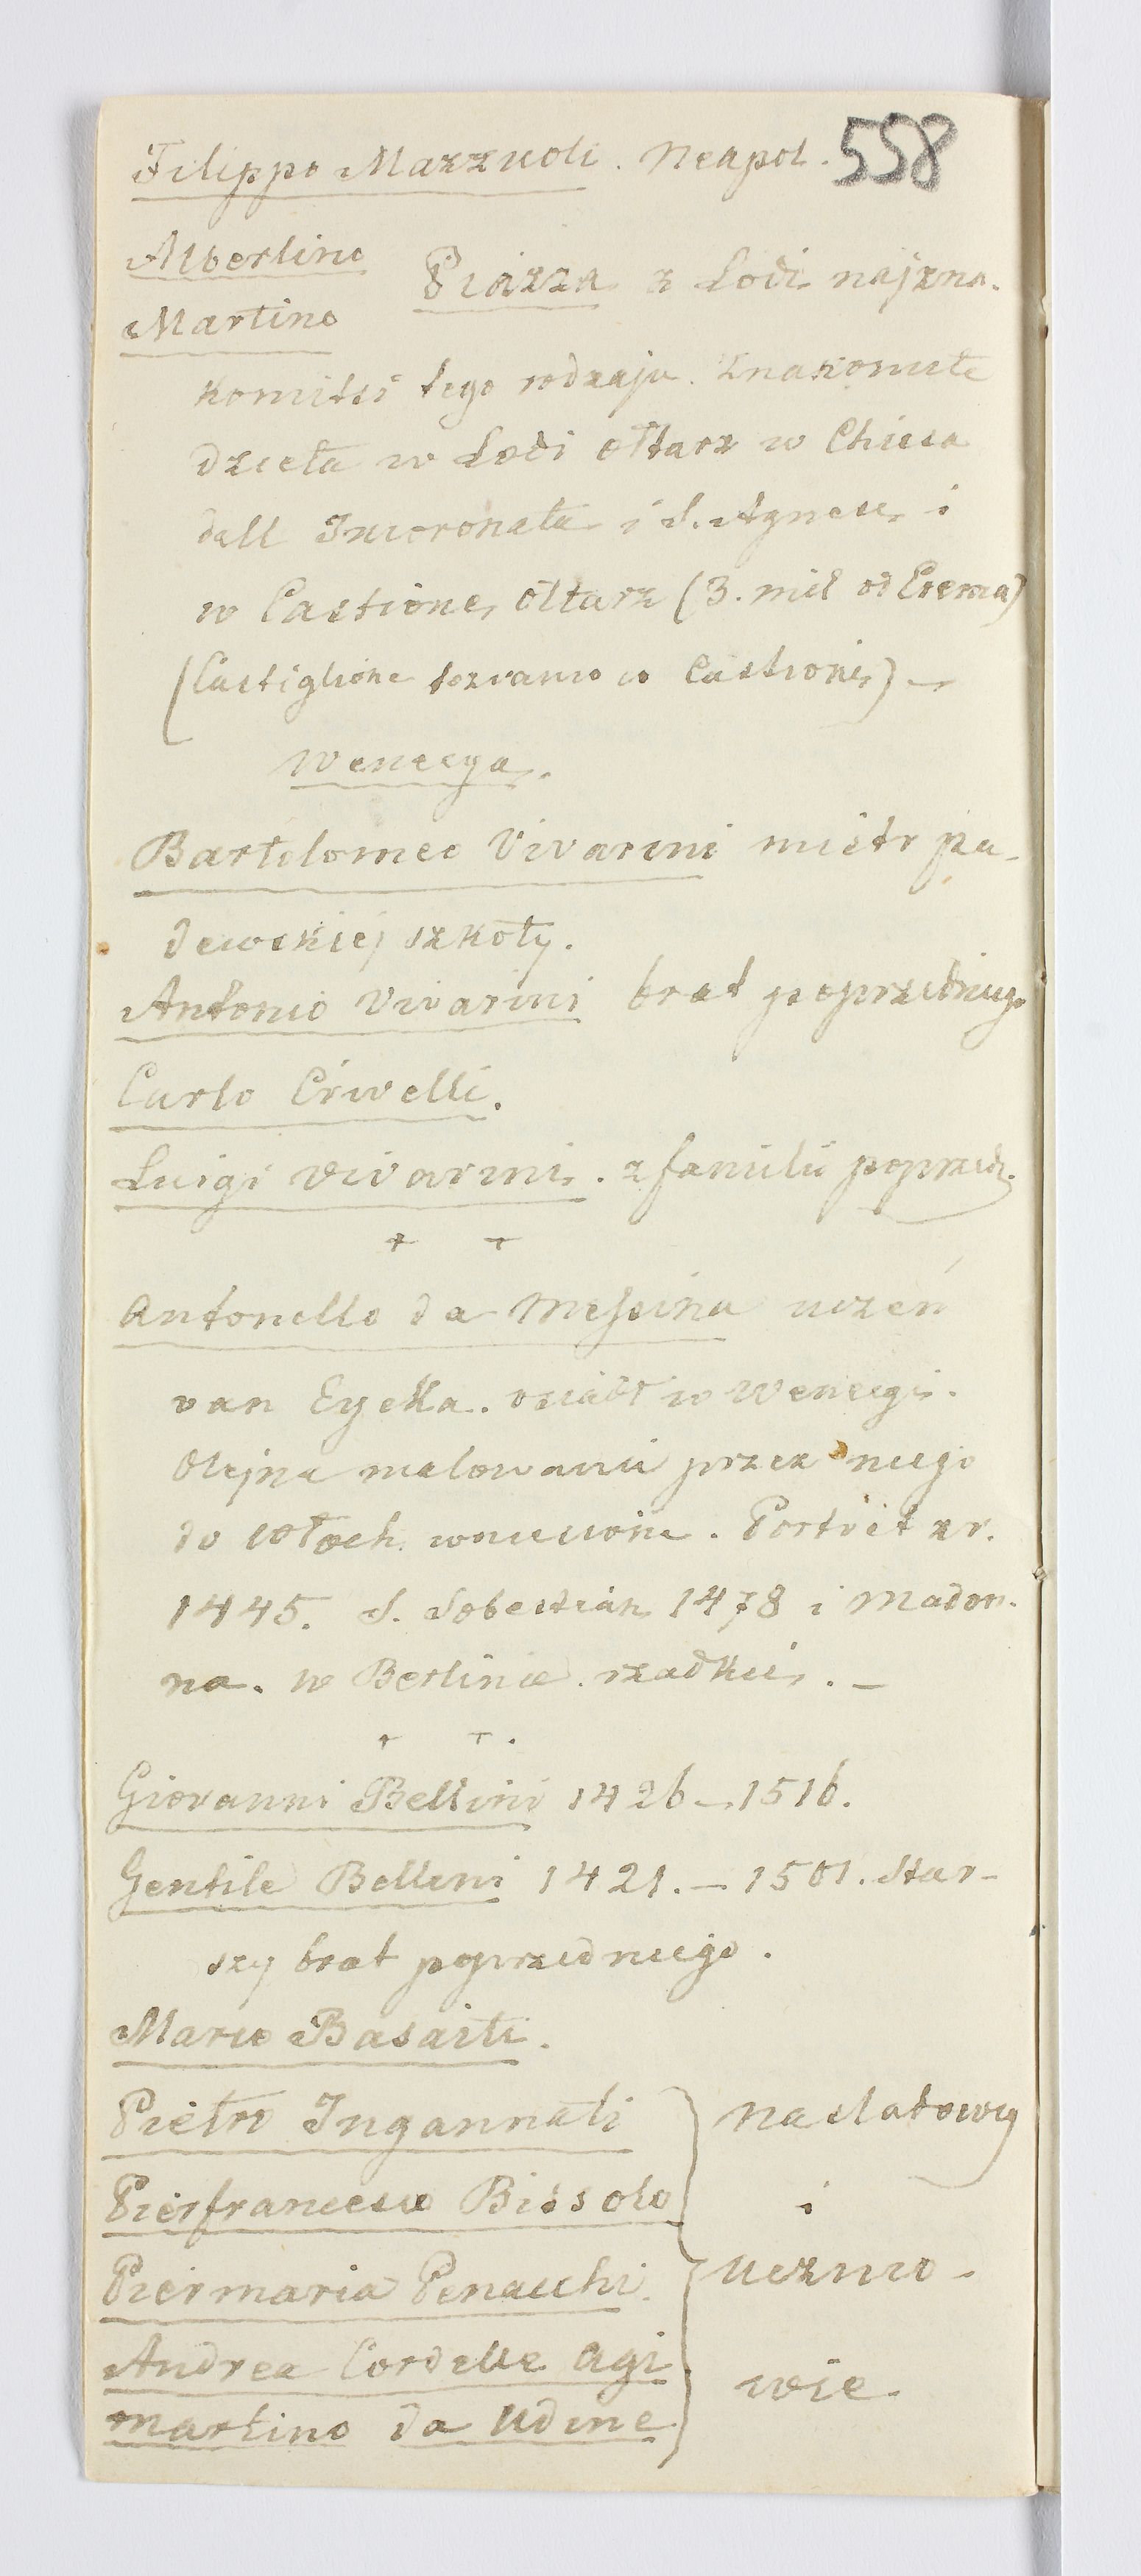 Filippo Mazzuoli. Neapol. 558
Albertino
Martino
Piazza z Lodi najzna-
komitsi tego rodzaju. Znakomite
dzieła w Lodi ołtarz w Chiesa
dall Incoronata i S. Agnese i
w Castione, ołtarz (3. mil od Crema)
(Castiglione w Castione) —
Wenecya.
Bartolomeo Vivarini mistr pa-
dewskiej szkoły.
Antonio Vivarini brat poprzedniego
Carlo Crivelli.
Luigi Vivarini. z familii poprzedz.
+ +
Antonello da Messina uczeń
van Eycka. osiadł w Wenecyi.
Olejna malowanie przez niego
do Włoch wniesione. Portret z r.
1445. S. Sebestian 1478 i Madon-
na. w Berlinie. rzadkie. —
+ +.
Giovanni Bellini 1426 – 1516.
Gentile Bellini 1421. – 1501. Star-
szy brat poprzedniego.
Marco Basaiti.
Pietro Ingannati
Pierfrancesco Bissolo
Piermaria Penacchi.
Andrea Cordelle Agi
Martino da Udine
nasladowcy
i
ucznio-
wie.